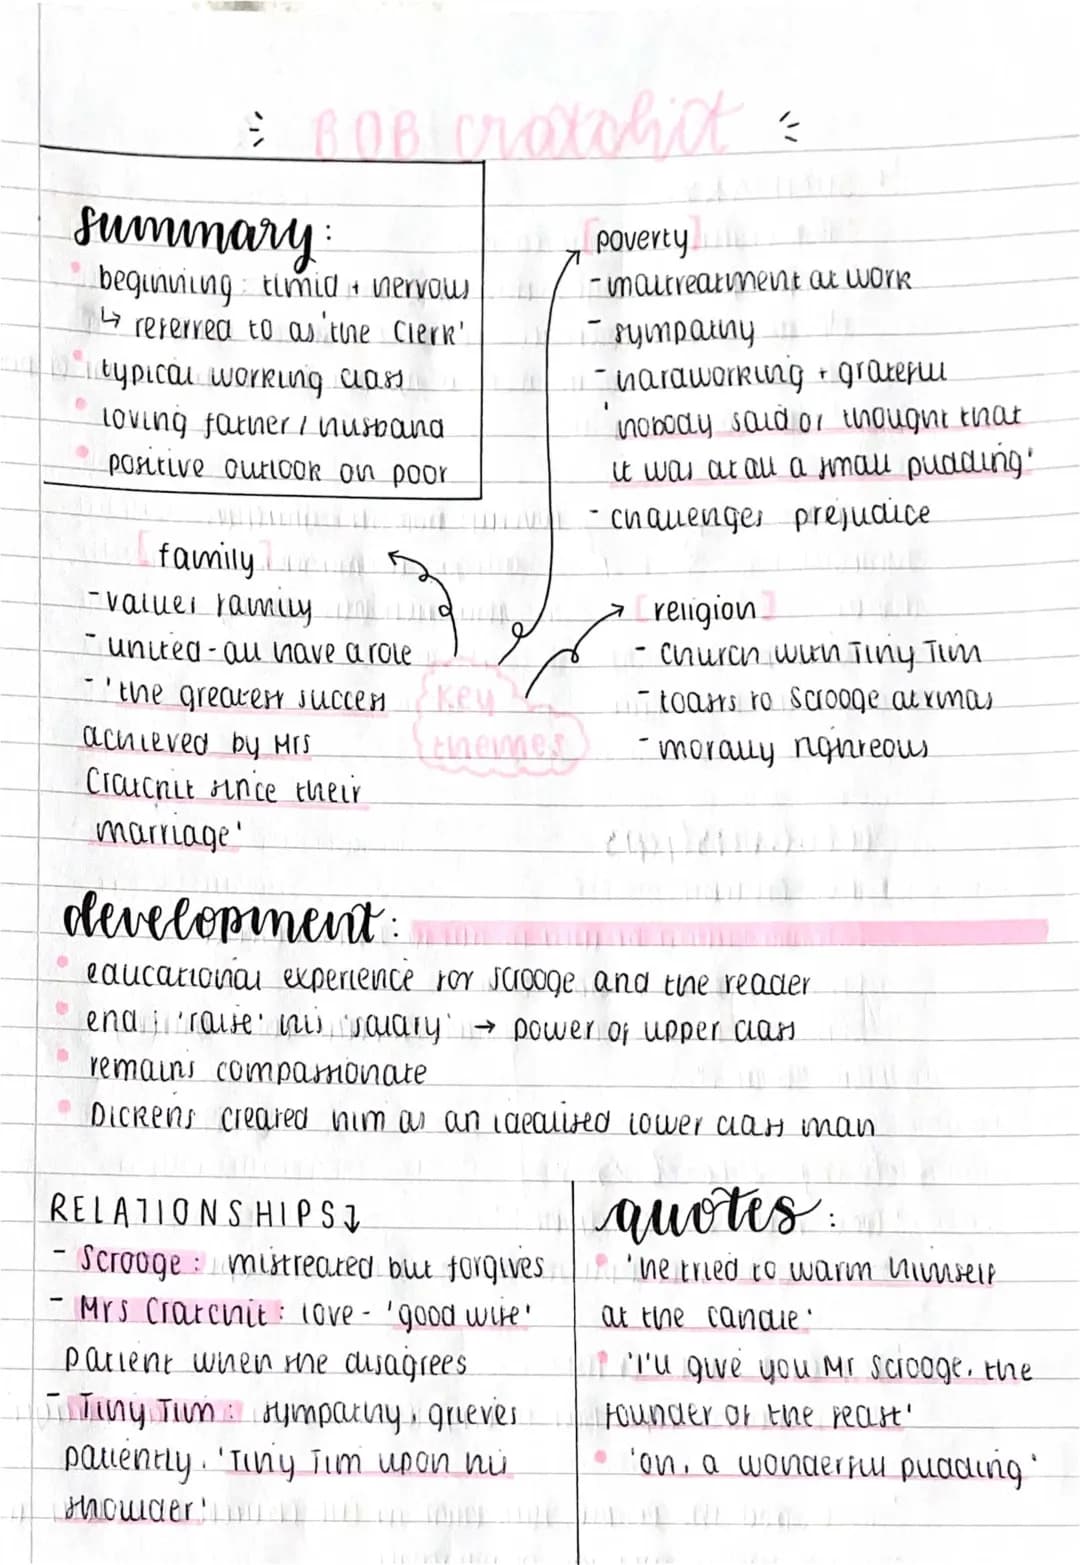 BOB cratchit
summary:
beginning: timid + nervous
↳ referred to as 'the clerk'
typical working class
loving father / husband
positive outlook on poor
[poverty]
- maltreatment at work
- sympathy
- hardworking + grateful
'nobody said or thought that
it was at all a small pudding'
- challenges prejudice
[family]
- values family
- united - all have a role
- 'the greatest success
achieved by Mrs
Cratchit since their
marriage'
key
themes
[religion]
- church with Tiny Tim
- toasts to Scrooge at xmas
- morally righteous
development:
educational experience for scrooge and the reader
end: 'raise' his 'salary' → power of upper class
remains compassionate
Dickens created him as an idealised lower class man
RELATIONSHIPS↓
- Scrooge: mistreated but forgives
- Mrs Cratchit: love - 'good wife'
patient when she disagrees
- Tiny Tim: sympathy, grieves
patiently. 'Tiny Tim upon his
shoulder'
quotes:
'he tried to warm himself
at the candle'
'I'll give you Mr Scrooge, the
founder of the feast'
'oh, a wonderful pudding'